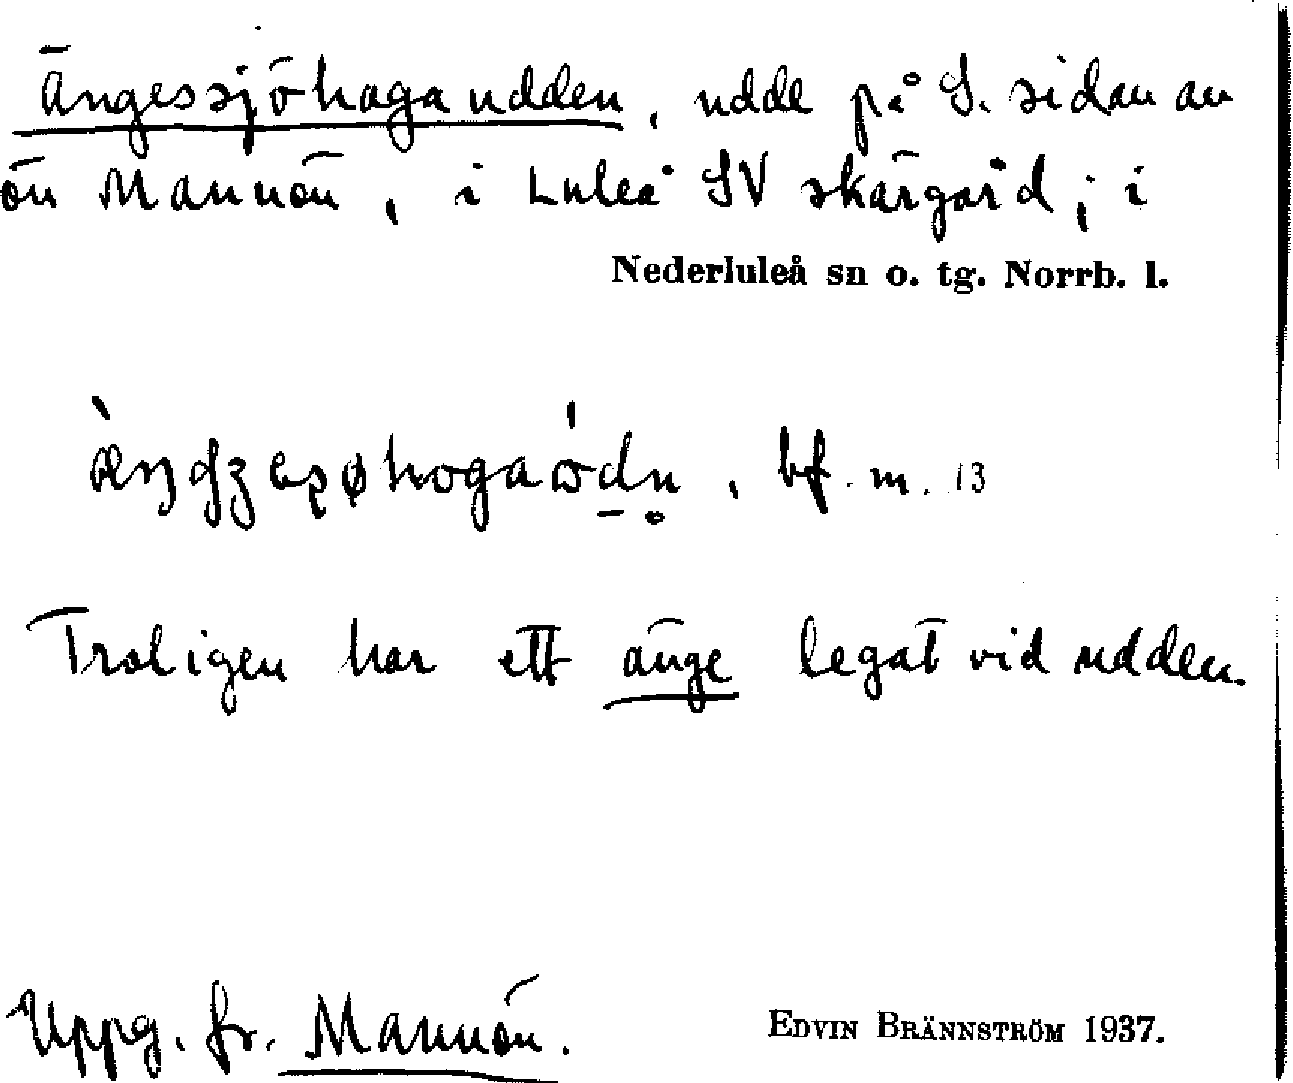 Ängessjöhagaudden, udde på S. sidan av
ön Mannön, i Luleå SV skärgård; i
Nederluleå sn o. tg. Norrb. l.
bf. m. 13
Troligen har ett änge legat vid udden.
Uppg. fr. Mannön.
EDVIN BRÄNNSTRÖM 1937.